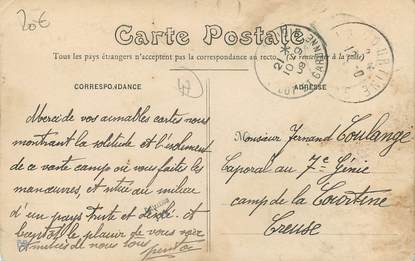 20€
Carte Postale
Tous les pays étrangers n'acceptent pas la correspondance au recto (se renseigner à la poste)
CORRESPONDANCE
ADRESSE
Merci de vos aimables cartes nous
montrant la solitude et l'isolement
de ce vaste camp où vous faites les
manœuvres, et situé au milieu
d'un pays triste et désolé. et
bientôt le plaisir de vous voir
amitiés de nous tous
Monsieur Fernand Coulange
Caporal au 7e Génie
camp de la Courtine
Creuse
LOT-ET-GARONNE